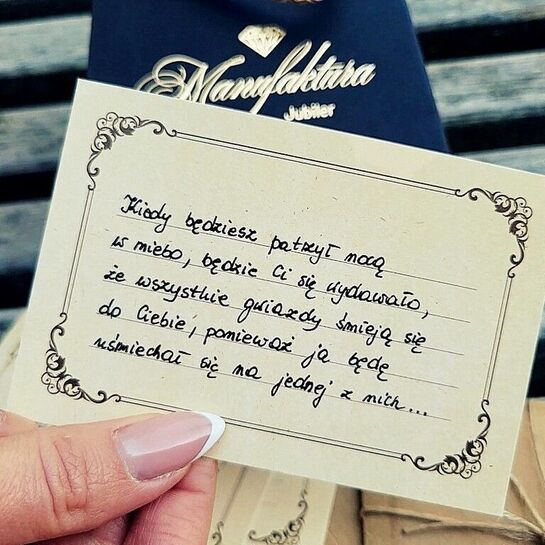 Manufaktura
Jubiler
Kiedy będziesz patrzył nocą
w niebo, będzie Ci się wydawało,
że wszystkie gwiazdy śmieją się
do Ciebie, ponieważ ja będę
uśmiechał się na jednej z nich...